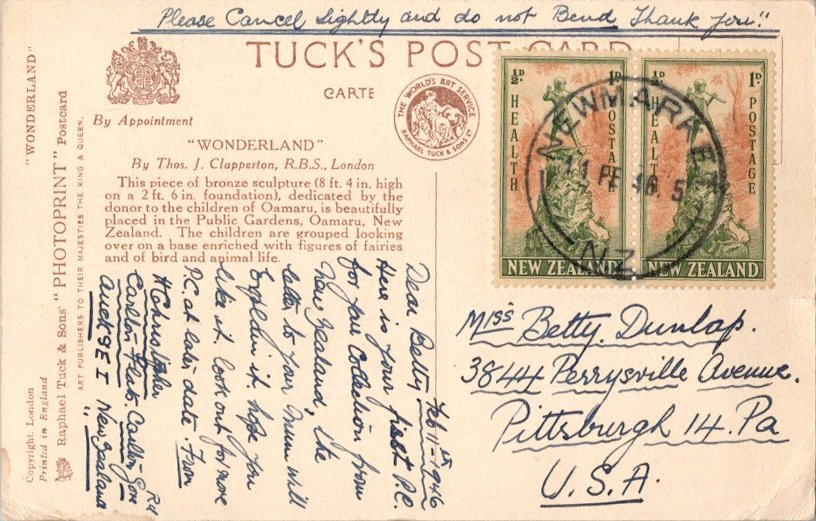 Please Cancel Lightly and do not Bend Thank you."
TUCK'S POST CARD
CARTE
By Appointment
THE WORLD'S ART SERVICE
RAPHAEL TUCK & SONS LD
"WONDERLAND"
By Thos. J. Clapperton, R.B.S., London
This piece of bronze sculpture (8 ft. 4 in. high
on a 2 ft. 6 in. foundation), dedicated by the
donor to the children of Oamaru, is beautifully
placed in the Public Gardens, Oamaru, New
Zealand. The children are grouped looking
over on a base enriched with figures of fairies
and of bird and animal life.
"WONDERLAND"
Copyright. London
Printed in England
Raphael Tuck & Sons' "PHOTOPRINT" Postcard
ART PUBLISHERS TO THEIR MAJESTIES THE KING & QUEEN.
½D. 1D.
HEALTH POSTAGE
NEW ZEALAND
½D. 1D.
HEALTH POSTAGE
NEW ZEALAND
NEWMARKET
11 FE 46
N.Z.
Feb 11th 1946
Dear Betty
Here is your first P.C.
for your Collection from
New Zealand, the
letter to your Mum will
Explain it. hope you
like it. look out for more
P.C. at later date. From
H Christopher
Carlton Flats. Carlton Gore Rd
Auck SE I New Zealand
Miss Betty. Dunlap.
3844 Perrysville Avenue.
Pittsburgh 14. Pa
U.S.A.